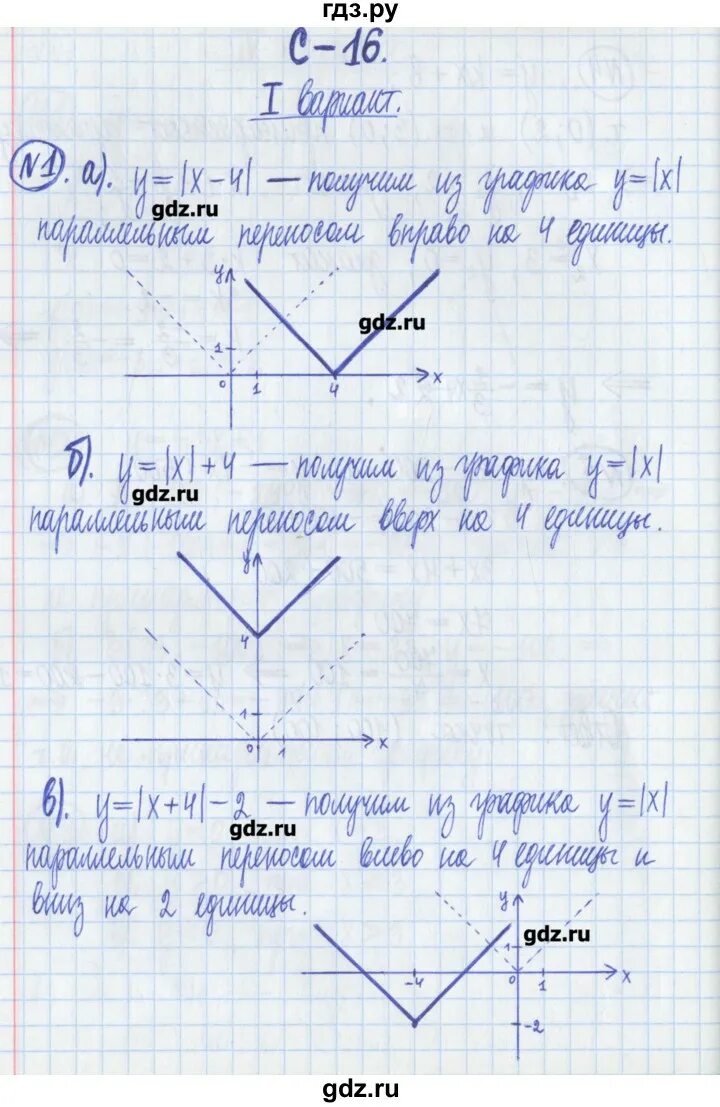 гдз.ру
С-16.
I вариант.
№1. а). y=|x-4| — получим из графика y=|x|
gdz.ru
параллельным переносом вправо на 4 единицы.
y
gdz.ru
1
0 1 4 x
б). y=|x|+4 — получим из графика y=|x|
gdz.ru
параллельным переносом вверх на 4 единицы.
y
4
1
0 1 x
в). y=|x+4|-2 — получим из графика y=|x|
gdz.ru
параллельным переносом влево на 4 единицы и
вниз на 2 единицы.
y
gdz.ru
1
-4 0 1 x
-2
gdz.ru